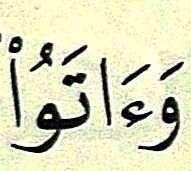 وَءَاتَوُاْ